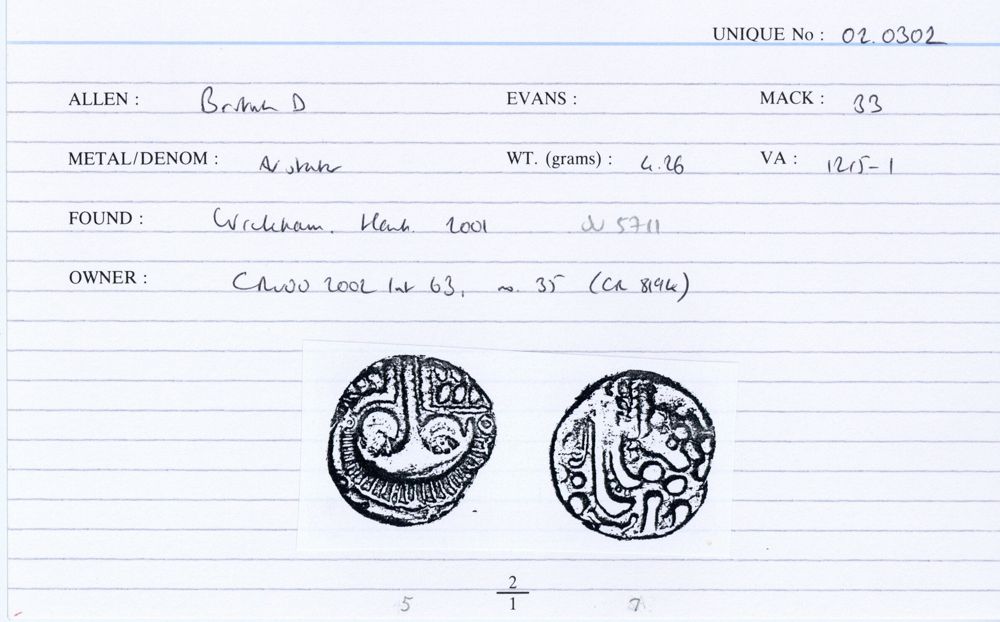 UNIQUE No : 02.0302
ALLEN : British D EVANS : MACK : 33
METAL/DENOM : AV stater WT. (grams) : 4.26 VA : 1215-1
FOUND : Wickham. Hants. 2001 5711
OWNER : 2002 63, no. 35 (CR 8194)
2
5 1 7